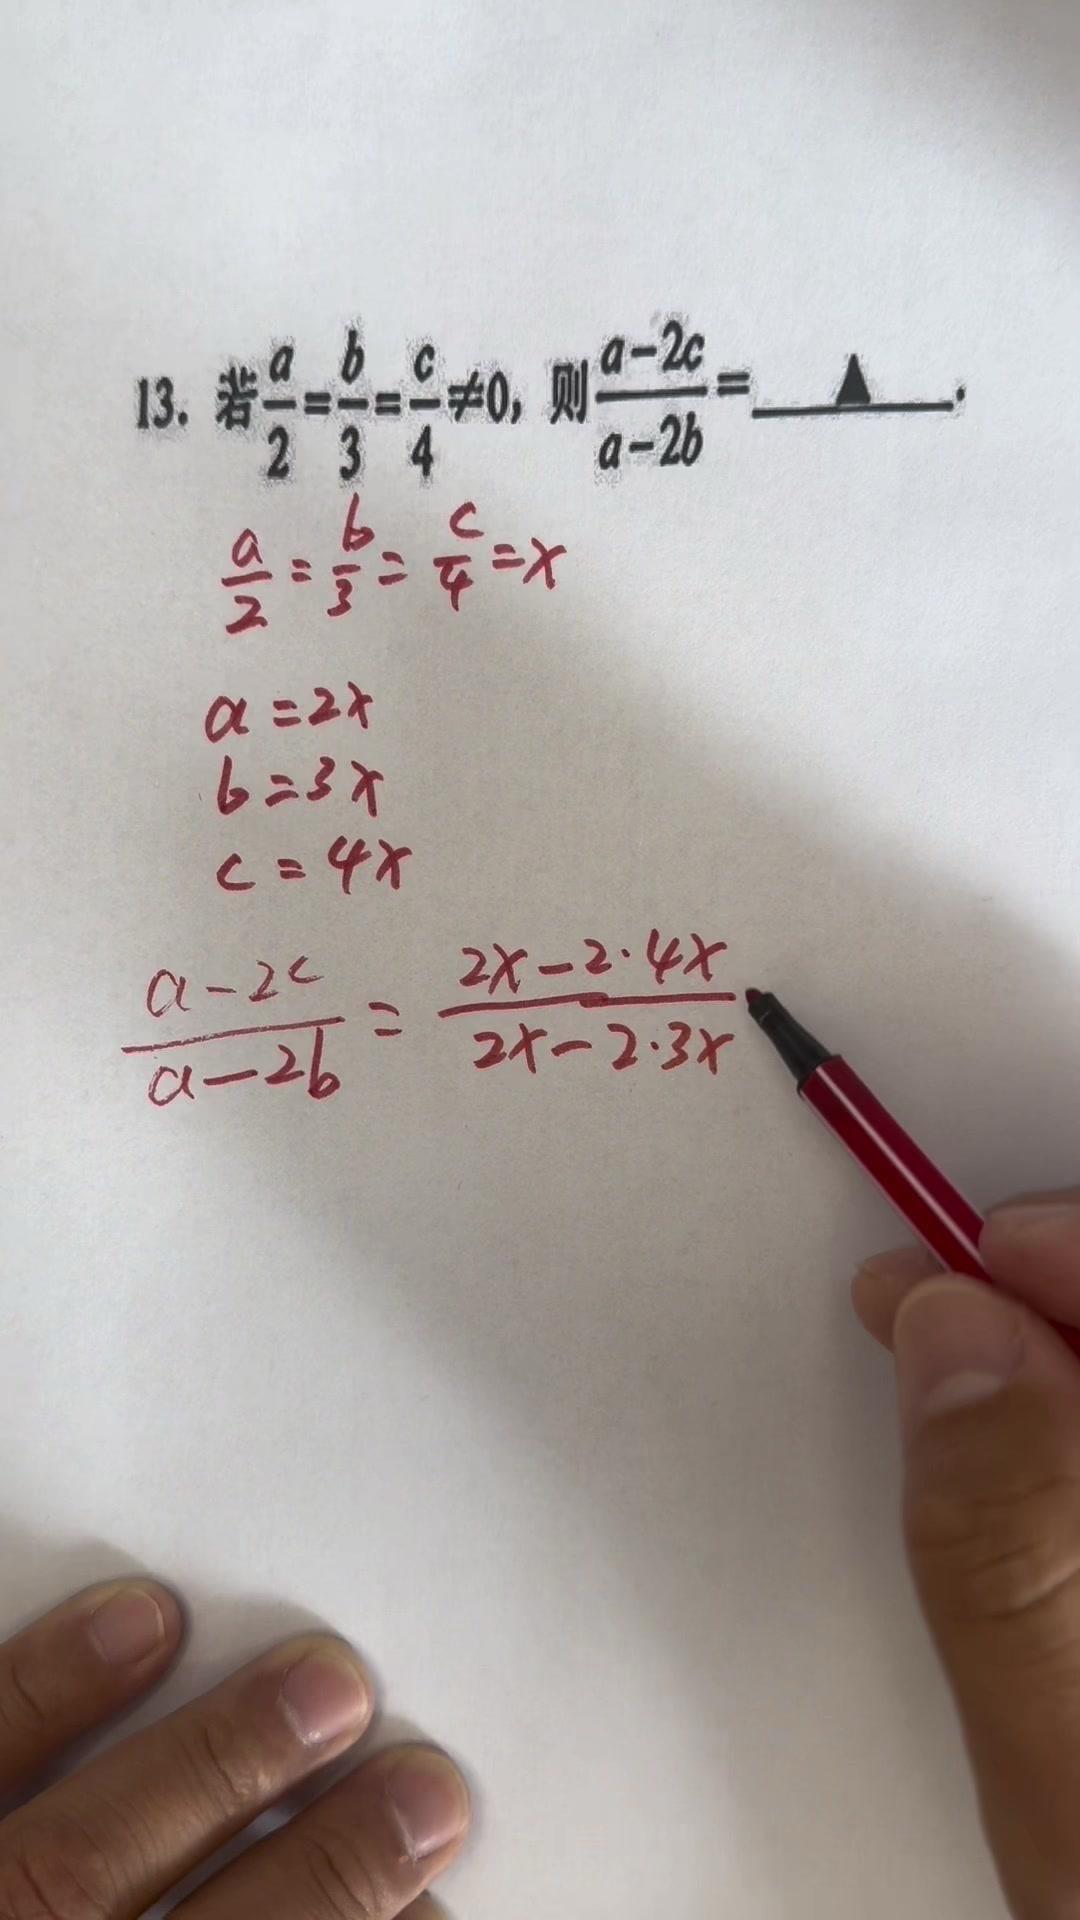 13. 若a/2=b/3=c/4≠0, 则(a-2c)/(a-2b)=__▲__.
a/2=b/3=c/4=x
a=2x
b=3x
c=4x
(a-2c)/(a-2b)=(2x-2·4x)/(2x-2·3x)